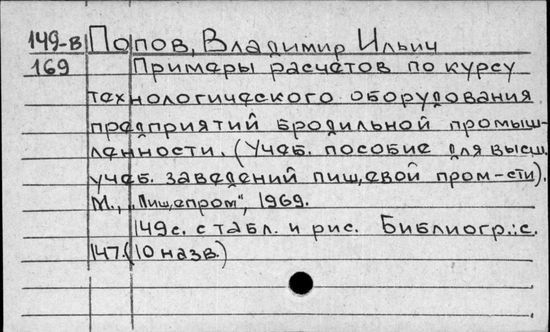 149-в Попов, Владимир Ильич
169 Примеры расчетов по курсу
технологического оборудования
предприятий бродильной промыш-
ленности. (Учеб. пособие для высш.
учеб. заведений пищевой пром-сти).
М., „Пищепром", 1969.
149 с. с табл. и рис. Библиогр.: с.
147. (10 назв.)